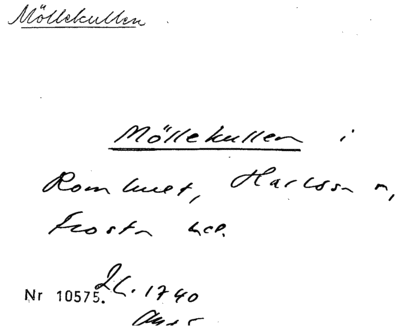 Möllekullen
Möllekullen i
Romhuset, Harlösa n,
Frosta hd.
Nr 10575. LL. 1740